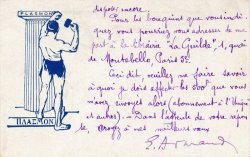 PLASMON
ΠΛΑΣΜΟΝ
dispos encore.
Pour les bouquins que vous indi
quez, vous pourriez vous adresser de ma
part à la librairie "La Guilde", quai
de Montebello, Paris 5e.
Ceci dit, veuillez me faire savoir
à quoi je dois affecter les 500 que vous
m'avez envoyés alors (abonnement à l'Unique
et autres). - Dans l'attente de votre répon
se, croyez à mes meilleurs vœux
E. Armand